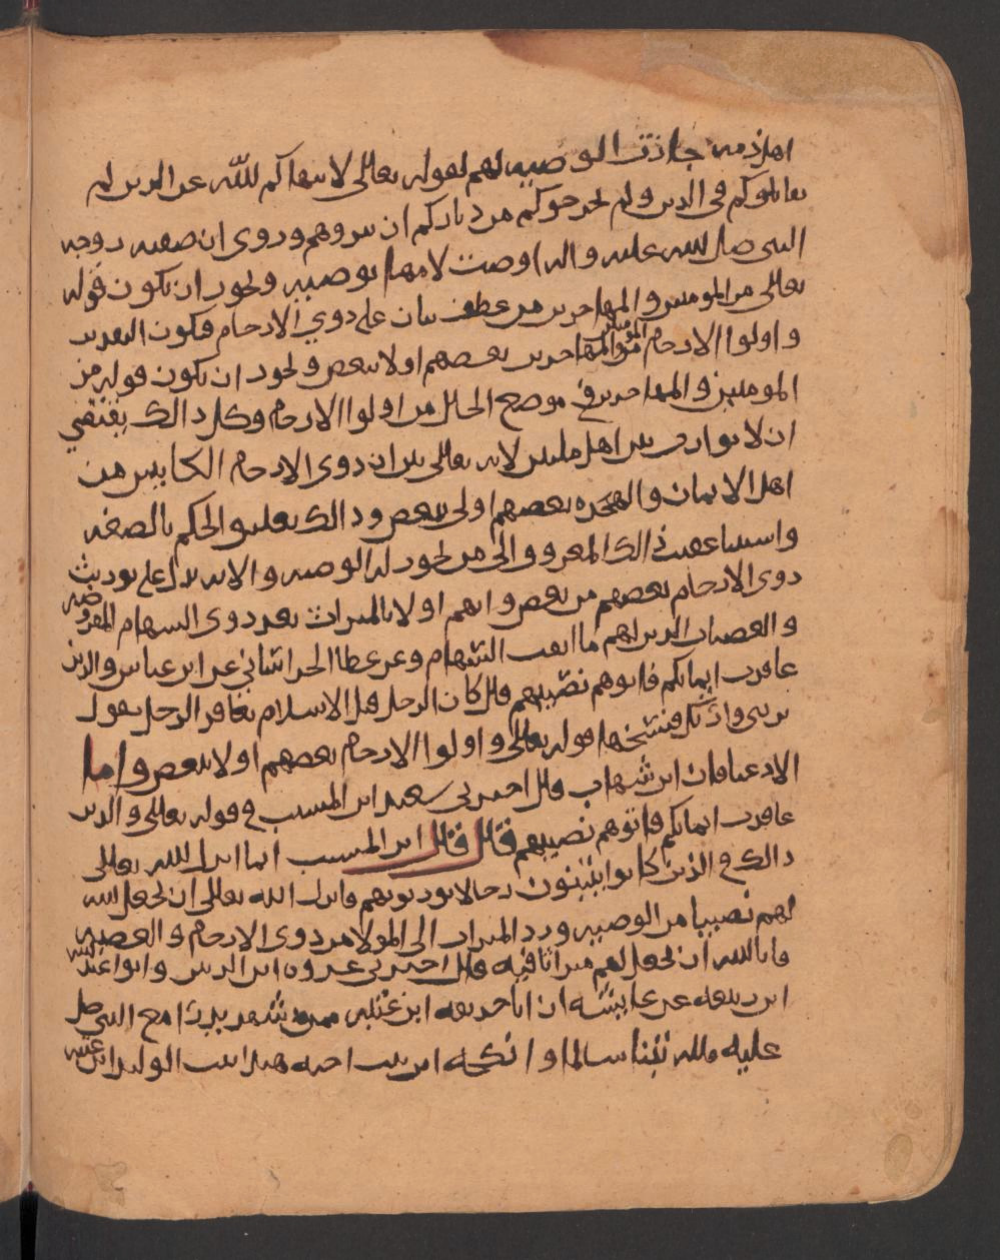 اهل ذمه جازت الوصيه لهم لقوله تعالى لا ينهاكم الله عن الذين لم
يقاتلوكم في الدين ولم يخرجوكم من دياركم ان تبروهم وروى ان صفيه زوجه
النبي صلى الله عليه واله اوصت لامها بوصيه ويجوز ان يكون قوله
تعالى من المومنين والمهاجرين من عطف بيان على ذوي الارحام فيكون التقدير
واولوا الارحام المومنين والمهاجرين بعضهم اولا ببعض ويجوز ان يكون قوله من
المومنين والمهاجرين في موضع الحال من اولوا الارحام وكل ذالك يقتضي
ان لا توارث بين اهل ملتين لانه تعالى بين ان ذوى الارحام الكاينين من
اهل الايمان والهجره بعضهم اولى ببعض وذالك تعليق الحكم بالصفه
واستثنا عقيب ذالك المعروف الى من تجوز له الوصيه والايه تدل على توريث
ذوى الارحام بعضهم من بعض وانهم اولا بالميراث بعد ذوى السهام المفروضه
والعصبات الذين لهم ما ابقت السهام وعن عطا الخراساني عن ابن عباس والذين
عاقدت ايمانكم فاتوهم نصيبهم قال كان الرجل قبل الاسلام يعاقد الرجل يقول
ترثني وارثك فنسخها قوله تعالى واولوا الارحام بعضهم اولا ببعض واما
الادعيا فان ابن شهاب قال اخبرني سعيد ابن المسيب في قوله تعالى والذين
عاقدت ايمانكم فاتوهم نصيبهم قال قال ابن المسيب انما انزل الله تعالى
ذالك في الذين كانوا يتبنون رجالا يورثونهم فانزل الله تعالى ان يجعل الله
لهم نصيبا من الوصيه ورد الميراث الى المولا من ذوى الارحام والعصبه
وابا الله ان يجعل لهم ميراثا فيه قال اخبرني عروه ابن الزبير وابوا
ابن ربيعه عن عايشه ان ابا حذيفه ابن عتبه ممن شهد بدرا مع النبي صلى
عليه واله تبنا سالما وانكحه ابن بنت اخيه هند ابنت الوليد ابن عتبه